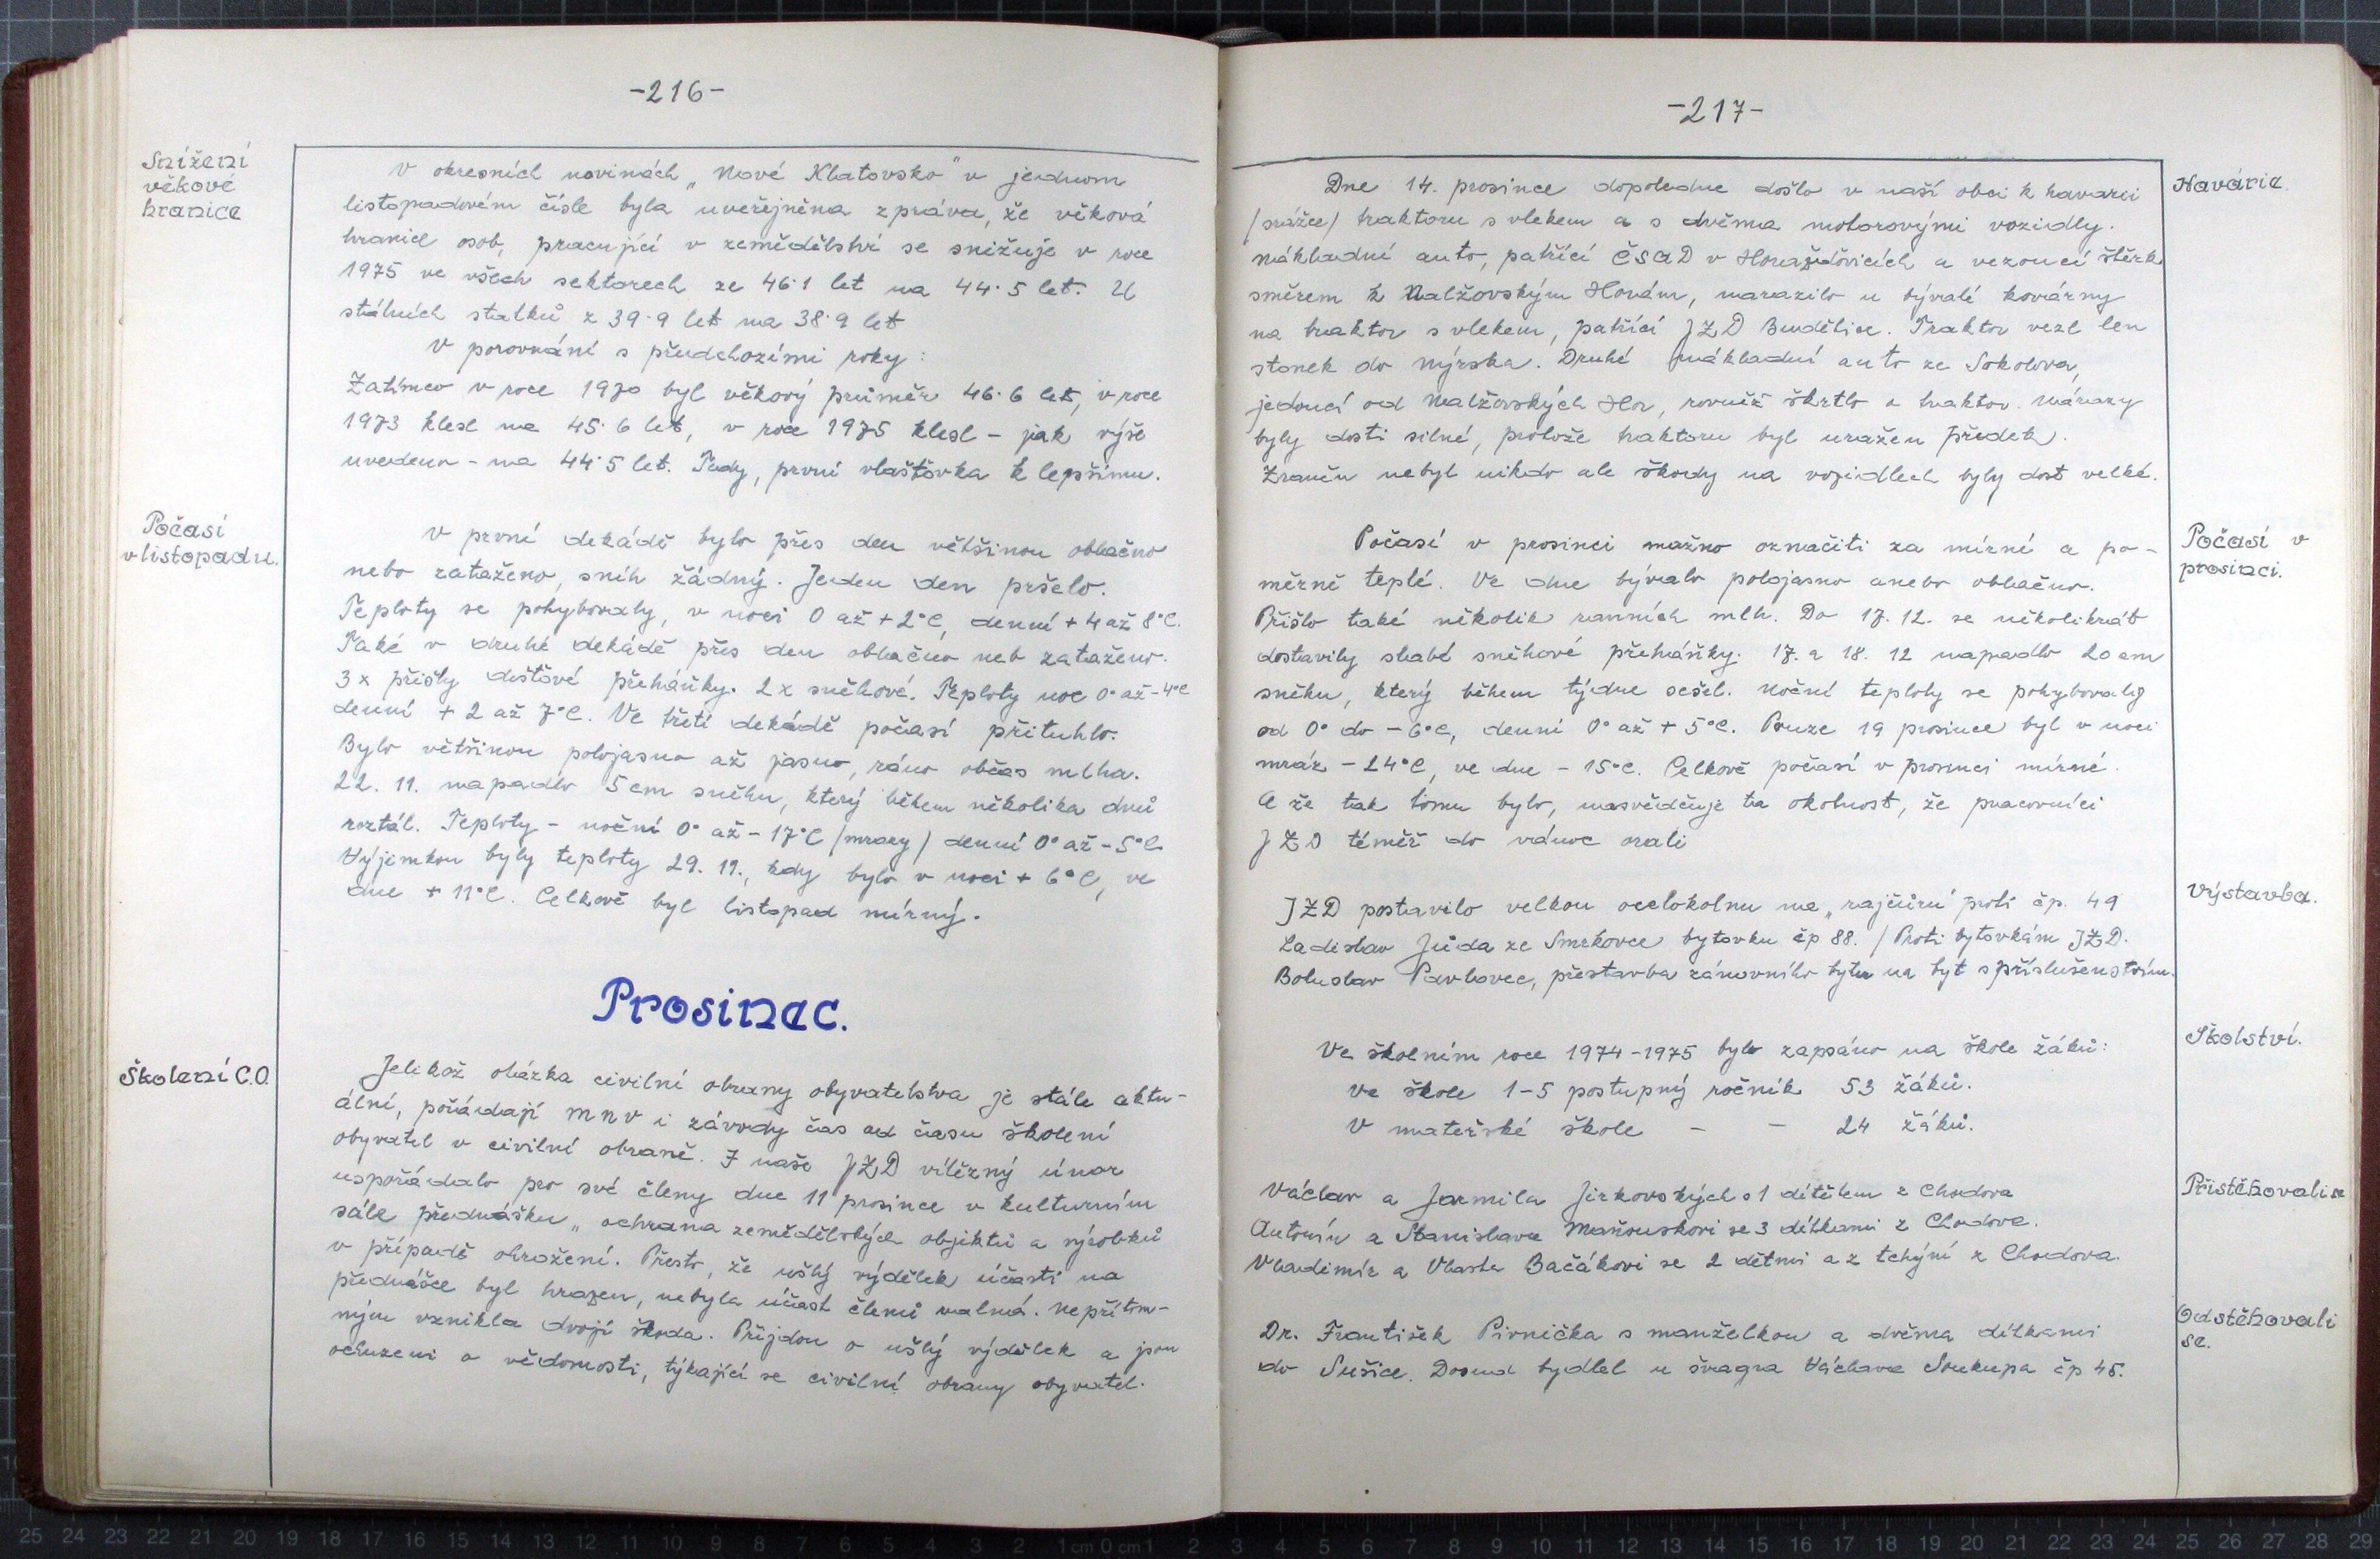 -216-
Snížení
věkové
hranice
V okresních novinách „Nové Klatovsko" v jednom
listopadovém čísle byla uveřejněna zpráva, že věková
hranice osob, pracující v zemědělství se snižuje v roce
1975 ve všech sektorech ze 46·1 let na 44·5 let. U
státních statků z 39·9 let na 38·9 let
V porovnání s předchozími roky:
Zatímco v roce 1970 byl věkový průměr 46·6 let, v roce
1973 klesl na 45·6 let, v roce 1975 klesl - jak výše
uvedeno - na 44·5 let. Tedy, první vlaštovka k lepšímu.
Počasí
v listopadu.
V první dekádě bylo přes den většinou oblačno
nebo zataženo, sníh žádný. Jeden den pršelo.
Teploty se pohybovaly, v noci 0 až +2°C, denní +4 až 8°C.
Také v druhé dekádě přes den oblačno neb zataženo.
3x přišly dešťové přeháňky. 2x sněhové. Teploty noc 0° až -4°C
denní +2 až 7°C. Ve třetí dekádě počasí přituhlo.
Bylo většinou polojasno až jasno, ráno občas mlha.
22. 11. napadlo 5 cm sněhu, který během několika dnů
roztál. Teploty - noční 0° až -17°C /mrazy/ denní 0° až -5°C
Výjimkou byly teploty 29. 11., kdy bylo v noci +6°C, ve
dne +11°C. Celkově byl listopad mírný.
Prosinec.
Školení C.O.
Jelikož otázka civilní obrany obyvatelstva je stále aktu-
ální, pořádají MNV i závody čas od času školení
obyvatel v civilní obraně. I naše JZD vítězný únor
uspořádalo pro své členy dne 11 prosince v kulturním
sále přednášku „ochrana zemědělských objektů a výrobků
v případě ohrožení. Přesto, že ušlý výdělek účasti na
přednášce byl hrazen, nebyla účast členů valná. Nepřítom-
ným vznikla dvojí škoda. Přijdou o ušlý výdělek a jsou
ochuzeni o vědomosti, týkající se civilní obrany obyvatel.
-217-
Havárie.
Dne 14. prosince dopoledne došlo v naší obci k havarii
/srážce/ traktoru s vlekem a s dvěma motorovými vozidly.
Nákladní auto, patřící ČSAD v Horažďovicích a vezoucí štěrk
směrem k Nalžovským Horám, narazilo u bývalé kovárny
na traktor s vlekem, patřící JZD Budětice. Traktor vezl len
stonek do Nýrska. Druhé nákladní auto ze Sokolova,
jedoucí od Nalžovských Hor, rovněž škrtlo o traktor. Nárazy
byly dosti silné, protože traktoru byl uražen předek.
Zraněn nebyl nikdo ale škody na vozidlech byly dost velké.
Počasí v
prosinci.
Počasí v prosinci možno označiti za mírné a po-
měrně teplé. Ve dne bývalo polojasno anebo oblačno.
Přišlo také několik ranních mlh. Do 17. 12. se několikrát
dostavily slabé sněhové přeháňky. 17. a 18. 12 napadlo 20 cm
sněhu, který během týdne sešel. Noční teploty se pohybovaly
od 0° do -6°C, denní 0° až +5°C. Pouze 19 prosince byl v noci
mráz -24°C, ve dne -15°C. Celkově počasí v prosinci mírné.
A že tak tomu bylo, nasvědčuje ta okolnost, že pracovníci
JZD téměř do vánoc orali
Výstavba.
JZD postavilo velkou ocelokolnu na „rajčůru" proti čp. 49
Ladislav Jůda ze Smrkovce bytovku čp 88. / Proti bytovkám JZD.
Bohuslav Pavlovec, přestavba zánovního bytu na byt s příslušenstvím.
Školství.
Ve školním roce 1974-1975 bylo zapsáno na škole žáků:
Ve škole 1-5 postupný ročník 53 žáků.
V mateřské škole - - 24 žáků.
Přistěhovali se
Václav a Jarmila Jirkovských s 1 dítětem z Chodova
Antonín a Stanislava Maňouskovi se 3 dítkami z Chodova.
Vladimír a Vlasta Bačákovi se 2 dětmi a z tchýní z Chodova.
Odstěhovali
se.
Dr. František Pivnička s manželkou a dvěma dítkami
do Sušice. Dosud bydlel u švagra Václava Soukupa čp 45.